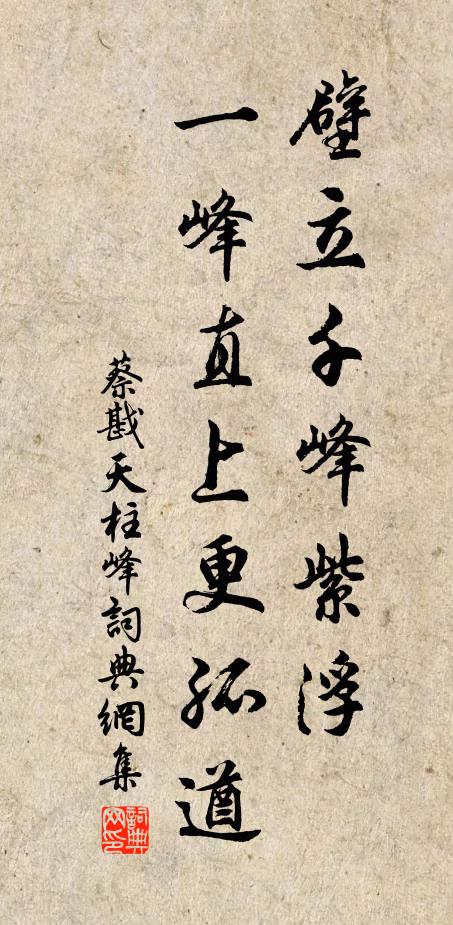 壁立千峰紫浮
一峰直上更孤遒
蔡戡天柱峰詞典網集
詞典
网印